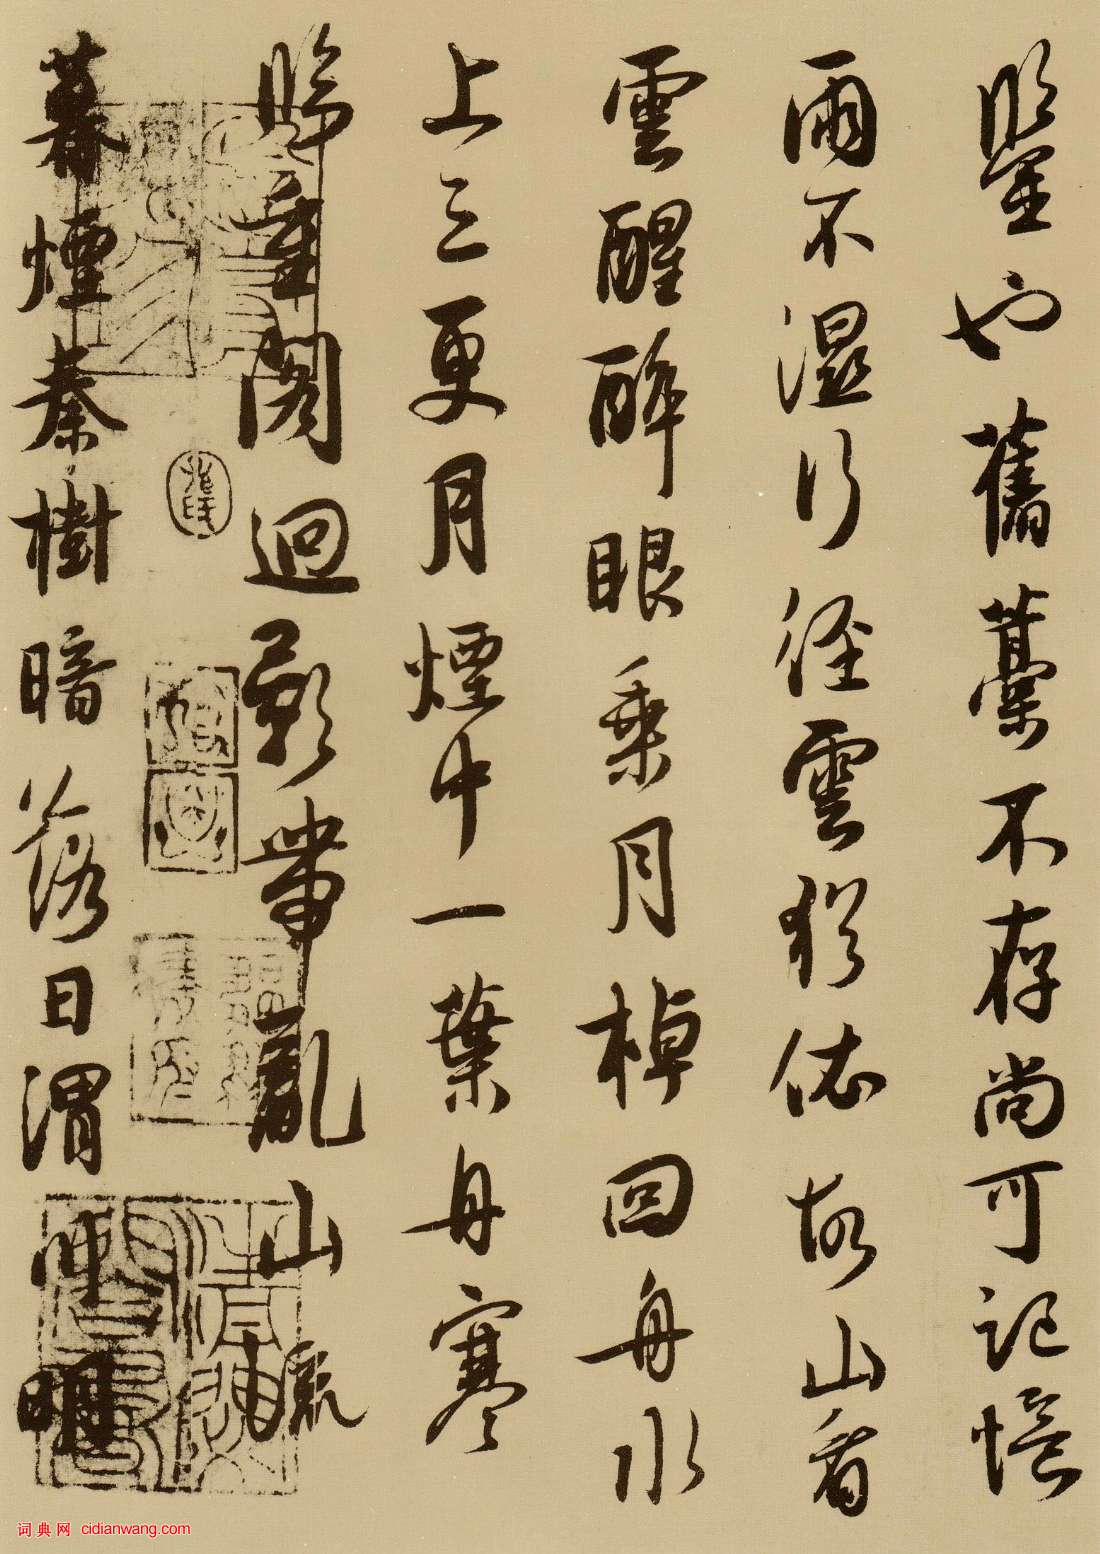 鑒也舊藁不存尚可記憶
雨不濕行徑雲猶依故山看
雲醒醉眼乘月棹回舟水
上三更月煙中一葉舟寒
重閣迥影帶亂山
暮煙秦樹暗落日渭明
词典网 cidianwang.com